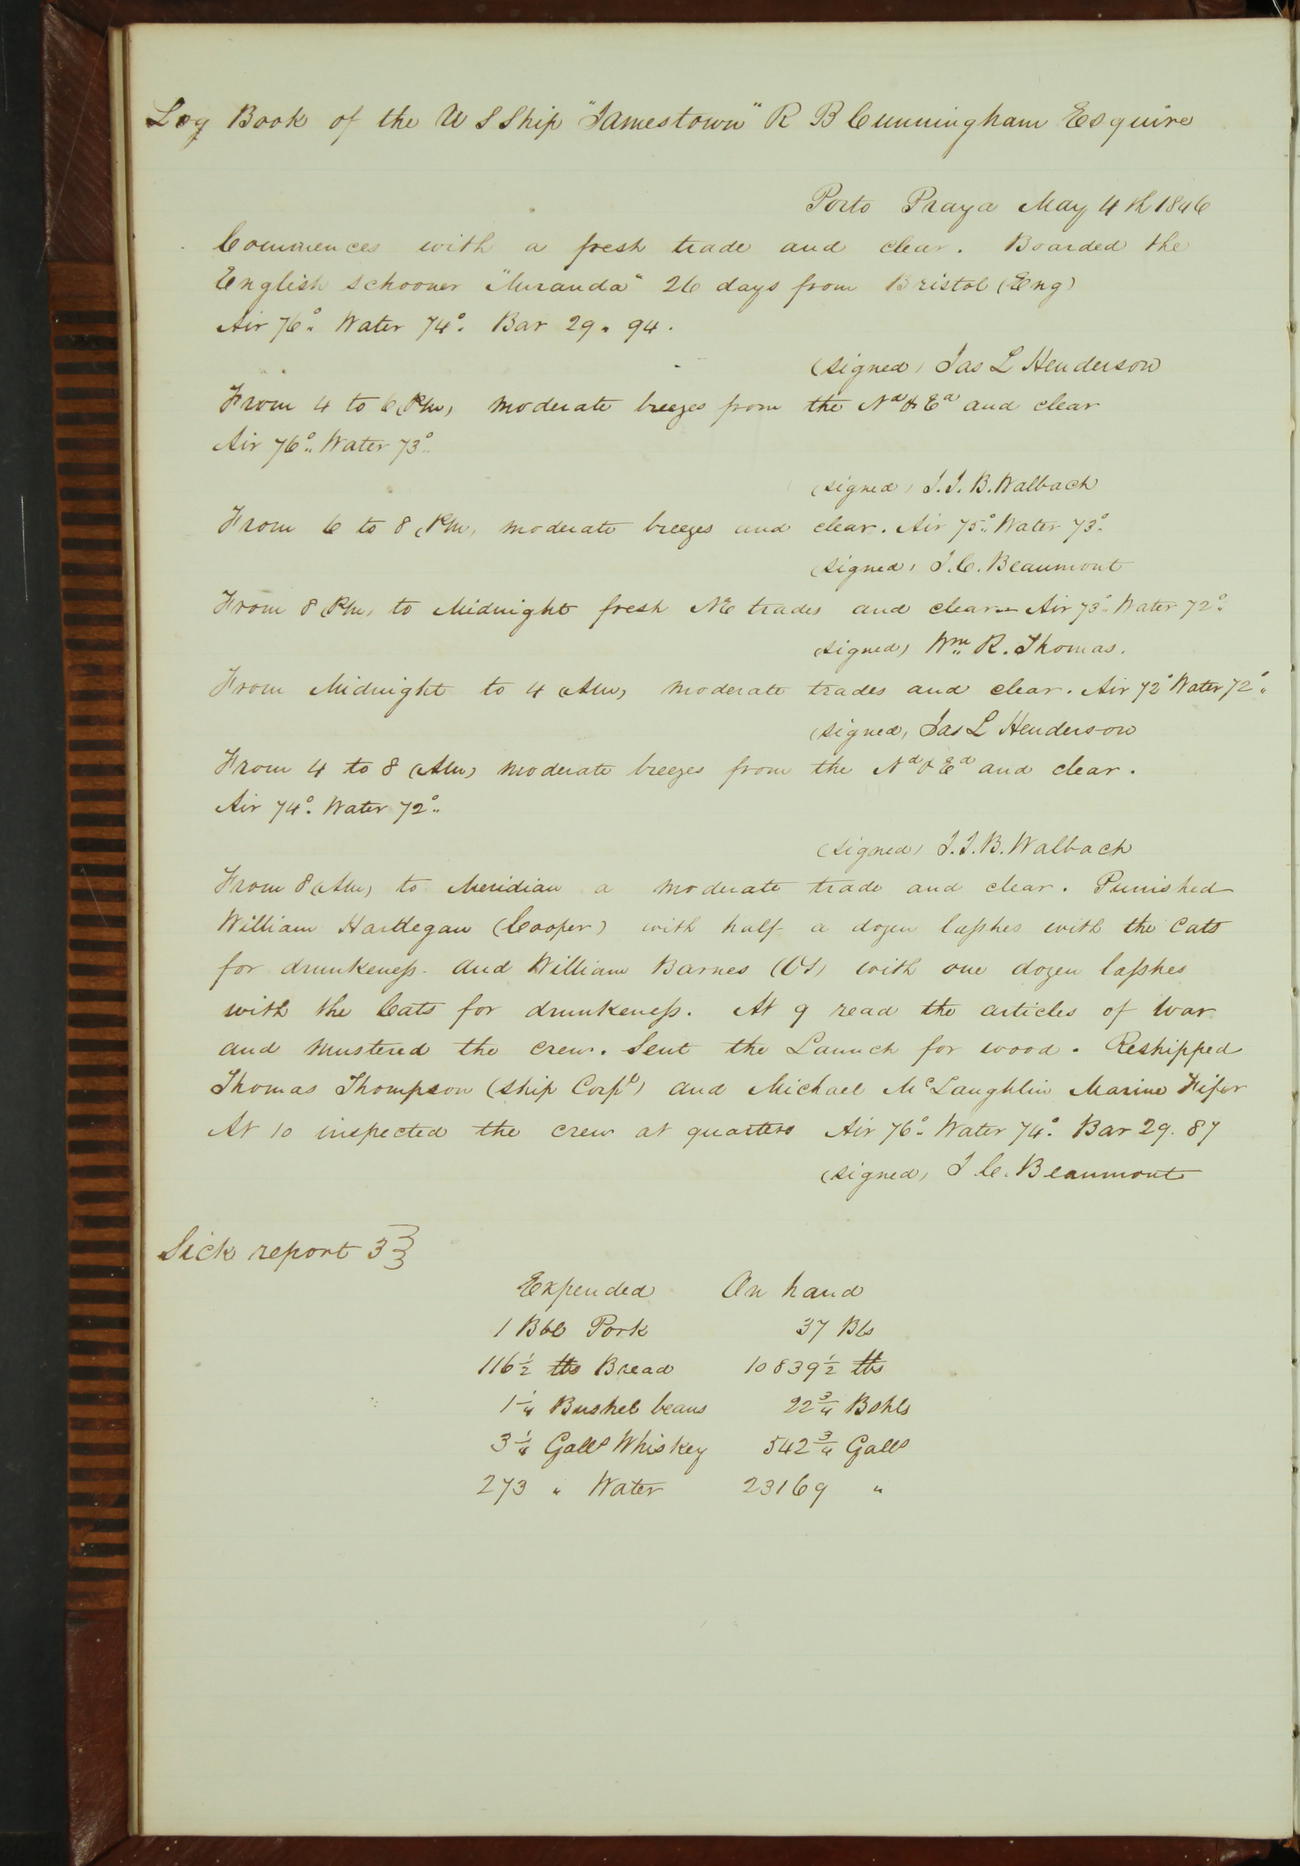 Log Book of the U S Ship "Jamestown" R B Cunningham Esquire
Porto Praya May 4th 1846
Commences with a fresh trade and clear. Boarded the
English schooner "Miranda" 26 days from Bristol (Eng)
Air 76° Water 74° Bar 29.94.
(signed) Jas L Henderson
From 4 to 6 (PM) moderate breezes from the Nd & Ed and clear
Air 76° Water 73°
(signed) J.J.B. Walbach
From 6 to 8 (PM) moderate breezes and clear. Air 75° Water 73°
(signed) J.C. Beaumont
From 8 (PM) to Midnight fresh NE trades and clear— Air 73° Water 72°
(signed) Wm R. Thomas.
From Midnight to 4 (AM) moderate trades and clear. Air 72° Water 72°
(signed) Jas L Henderson
From 4 to 8 (AM) moderate breezes from the Nd & Ed and clear.
Air 74° Water 72°
(signed) J.J.B. Walbach
From 8 (AM) to Meridian a moderate trade and clear. Punished
William Hartlegan (Cooper) with half a dozen lashes with the Cats
for drunkeness and William Barnes (OS) with one dozen lashes
with the Cats for drunkeness. At 9 read the articles of War
and mustered the crew. Sent the Launch for wood. Reshipped
Thomas Thompson (Ship Corpl) and Michael McLaughlin Marine Fifer
At 10 inspected the crew at quarters Air 76° Water 74° Bar 29.87
(signed) J C. Beaumont
Sick report 3}
Expended On hand
1 Bbl Pork 37 Bls
116½ lbs Bread 10839½ lbs
1¼ Bushel beans 22¾ Bshls
3¼ Galls Whiskey 542¾ Galls
273 " Water 23169 "